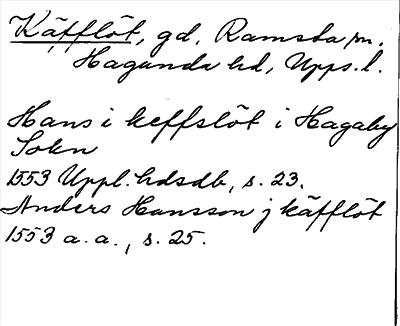 Käfflöt, gd, Ramsta sn.
Hagunda hd, Upps. l.
Hans i keffslöt i Hagaby
Sokn
1553 Uppl. hdsdb, s. 23.
Anders Hansson j käfflöt
1553 a. a., s. 25.